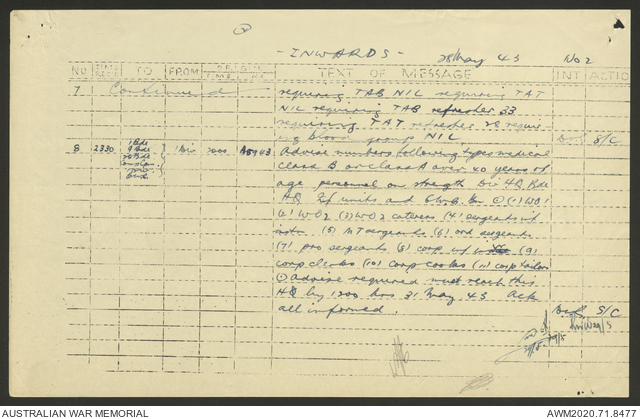 - INWARDS - 28/May 43 No 2
NO TIME RECD TO FROM ORIGIN TIME TEXT OF MESSAGE INT ACTION
7 Continued requiring TAB NIL requiring TAT
NIL requiring TAB refresher 33
requiring TAT refresher 28 requir
ing blood group NIL S/C
8 2330 1 Div 2000 Advise numbers following types medical
class B or class A over 40 years of
age personnel on strength Div HQ Bde
HQ Inf units and Bn (1) WO1
(2) WO2 (3) WO2 caterers (4) sergeants inf
instr (5) MT sergeants (6) ord sergeants
(7) pro sergeants (8) corp inf (9)
corp clerks (10) corp cooks (11) corp tailor
advise required must reach this
HQ by 1200 hrs 31 May 43 Ack
all informed. S/C
AUSTRALIAN WAR MEMORIAL AWM2020.71.8477